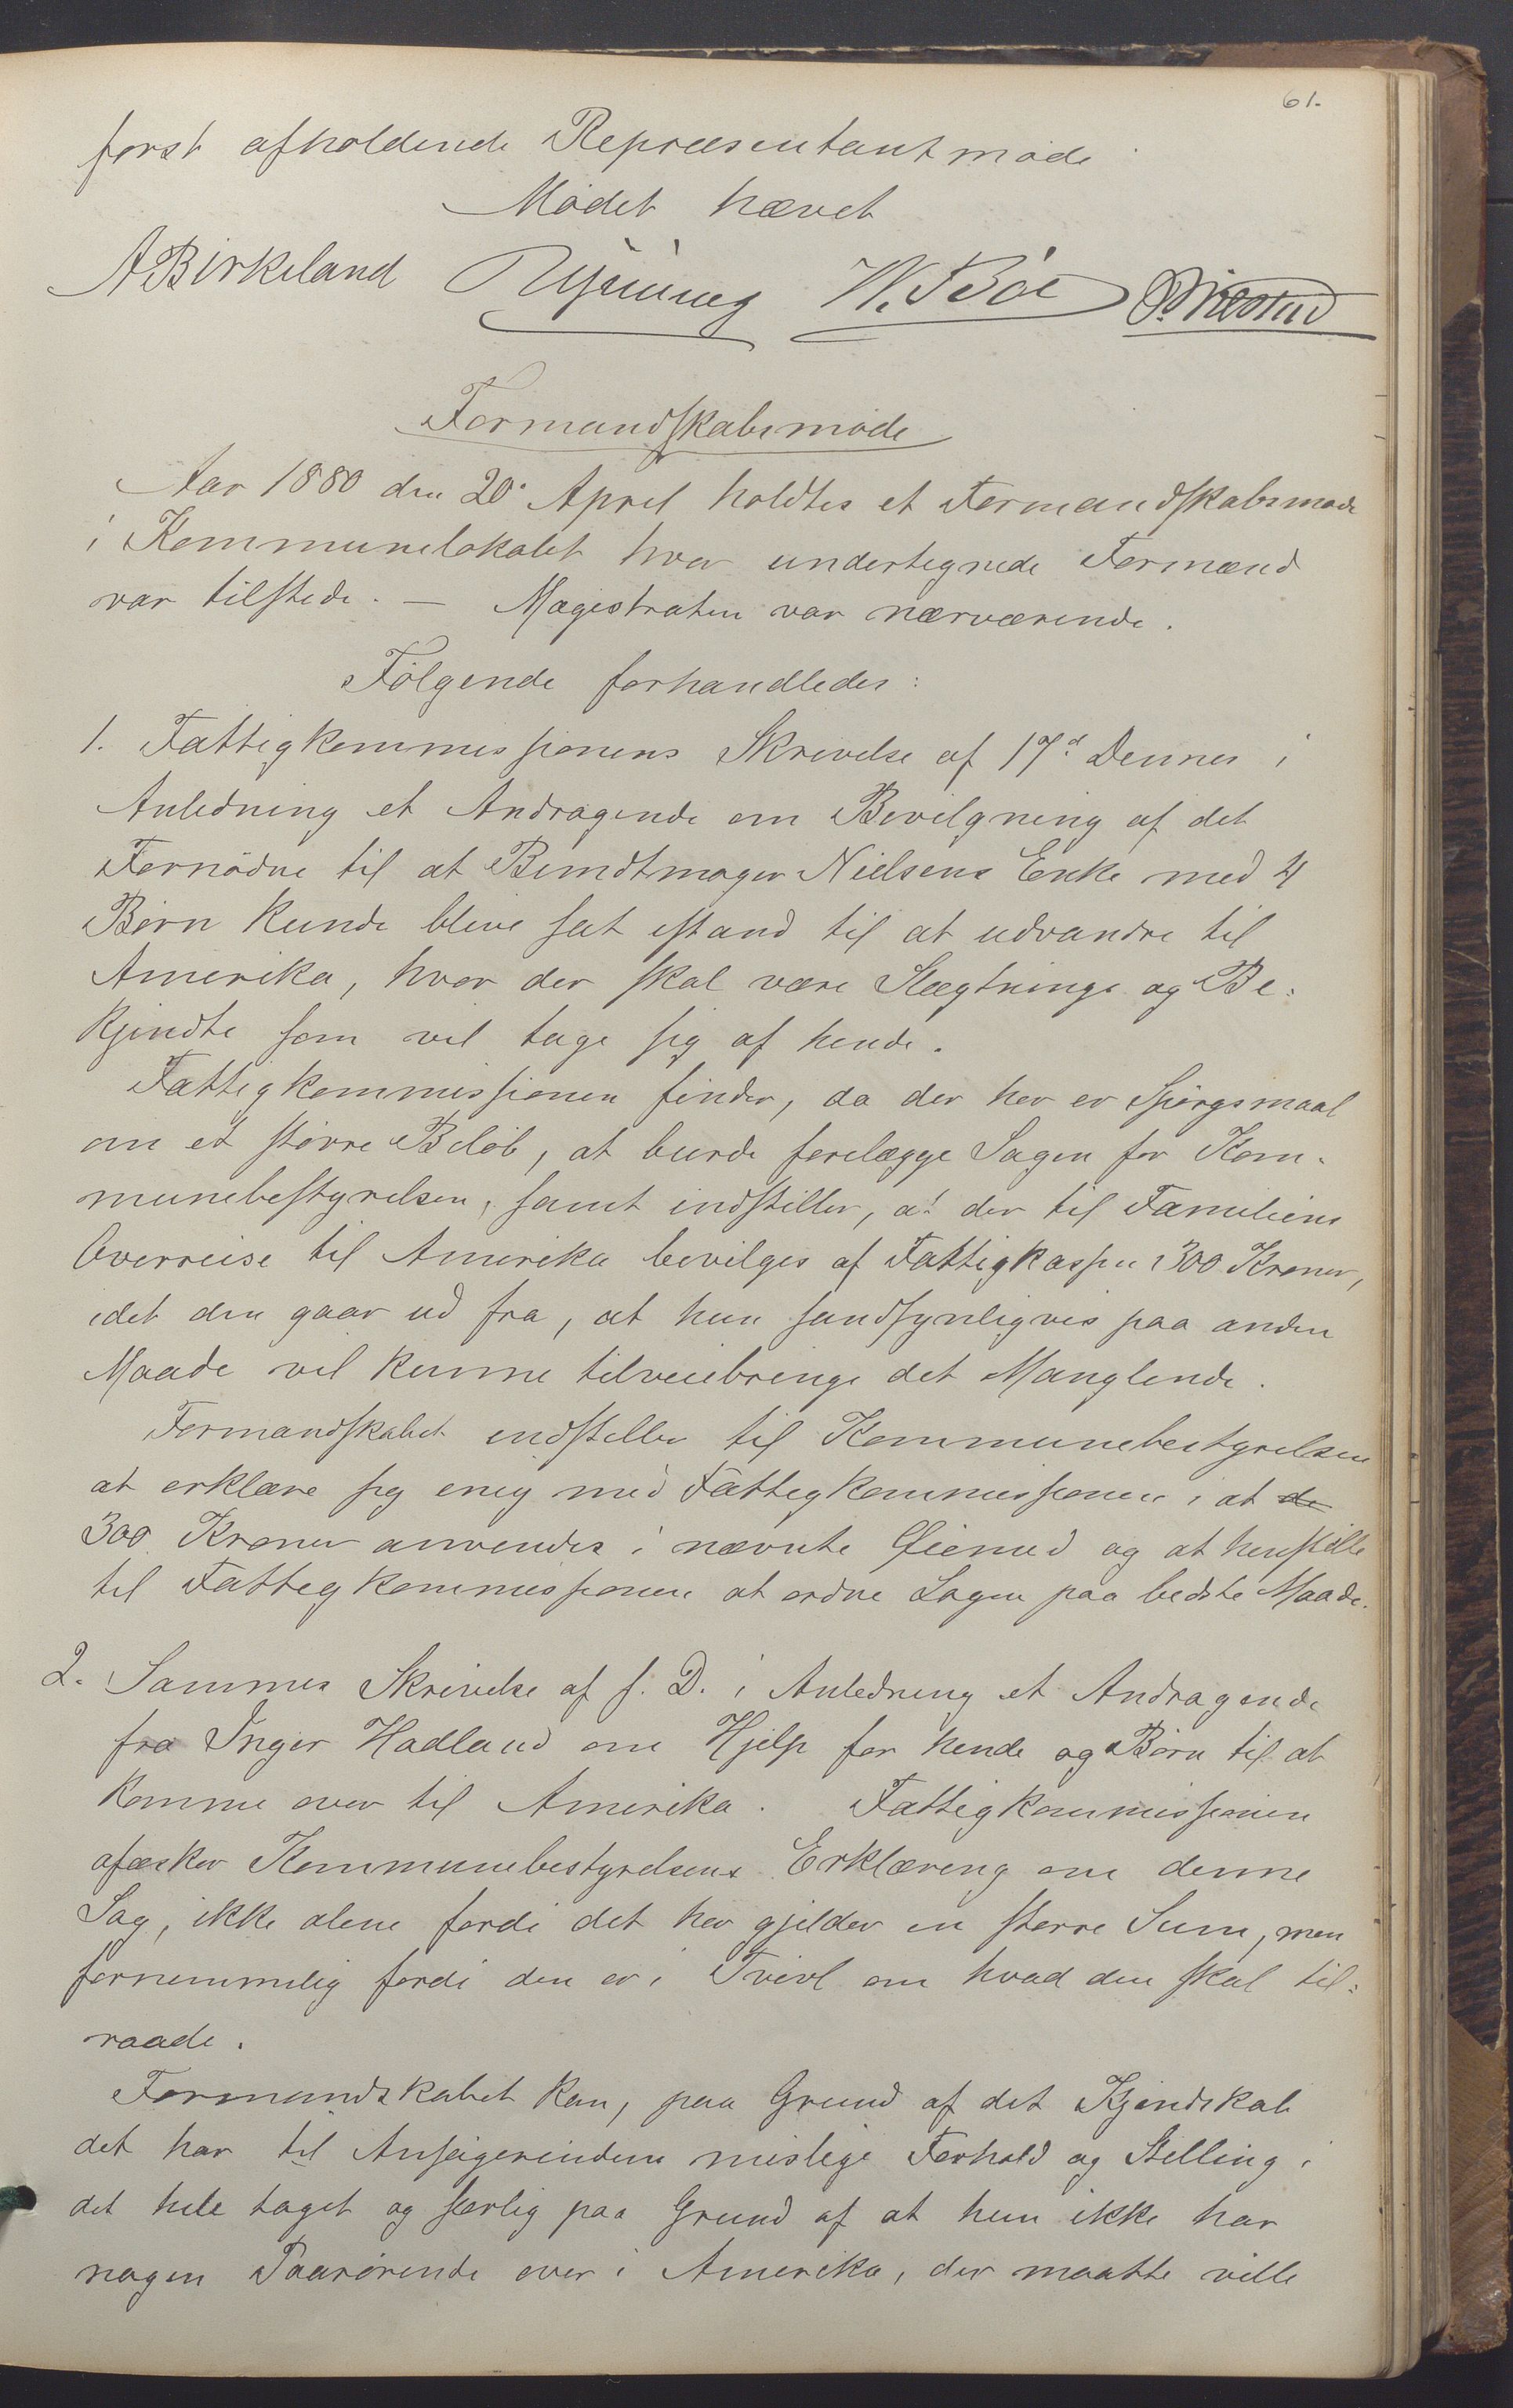 61.
først afholdende Repræsentantmøde
Mødet hævet
ABirkeland W. Bøe
Formandskabsmøde
Aar 1880 den 20. April holdtes et Formandskabsmøde
i Kommunelokalet hvor undertegnede Formænd
var tilstede. — Magistraten var nærværende.
Følgende forhandledes:
1. Fattigkommissionens Skrivelse af 17d Dennes i
Anledning et Andragende om Bevilgning af det
Fornødne til at Bundtmager Nielsens Enke med 4
Børn kunde blive sat istand til at udvandre til
Amerika, hvor der skal være Slægtninge og Be-
kjendte som vil tage sig af hende.
Fattigkommissionen finder, da der her er Spørgsmaal
om et større Beløb, at burde forelægge Sagen for Kom-
munebestyrelsen, samt indstiller, at der til Familiens
Overreise til Amerika bevilges af Fattigkassen 300 Kroner,
idet den gaar ud fra, at hun sandsynligvis paa anden
Maade vil kunne tilveiebringe det Manglende.
Formandskabet indstiller til Kommunebestyrelsen
at erklære sig enig med Fattigkommissionen i at de
300 Kroner anvendes i nævnte Øiemed og at henstille
til Fattigkommissionen at ordne Sagen paa bedste Maade.
2. Sammes Skrivelse af s. D. i Anledning et Andragende
fra Inger Hadland om Hjelp for hende og Børn til at
komme over til Amerika. Fattigkommissionen
afæsker Kommunebestyrelsens Erklæring om denne
Sag, ikke alene fordi det her gjelder en større Sum, men
fornemmelig fordi den er i Tvivl om hvad den skal til-
raade.
Formandskabet kan, paa Grund af det Kjendskab
det har til Ansøgerindens mislige Forhold og Stilling i
det hele taget og særlig paa Grund af at hun ikke har
nogen Paarørende over i Amerika, der maatte ville